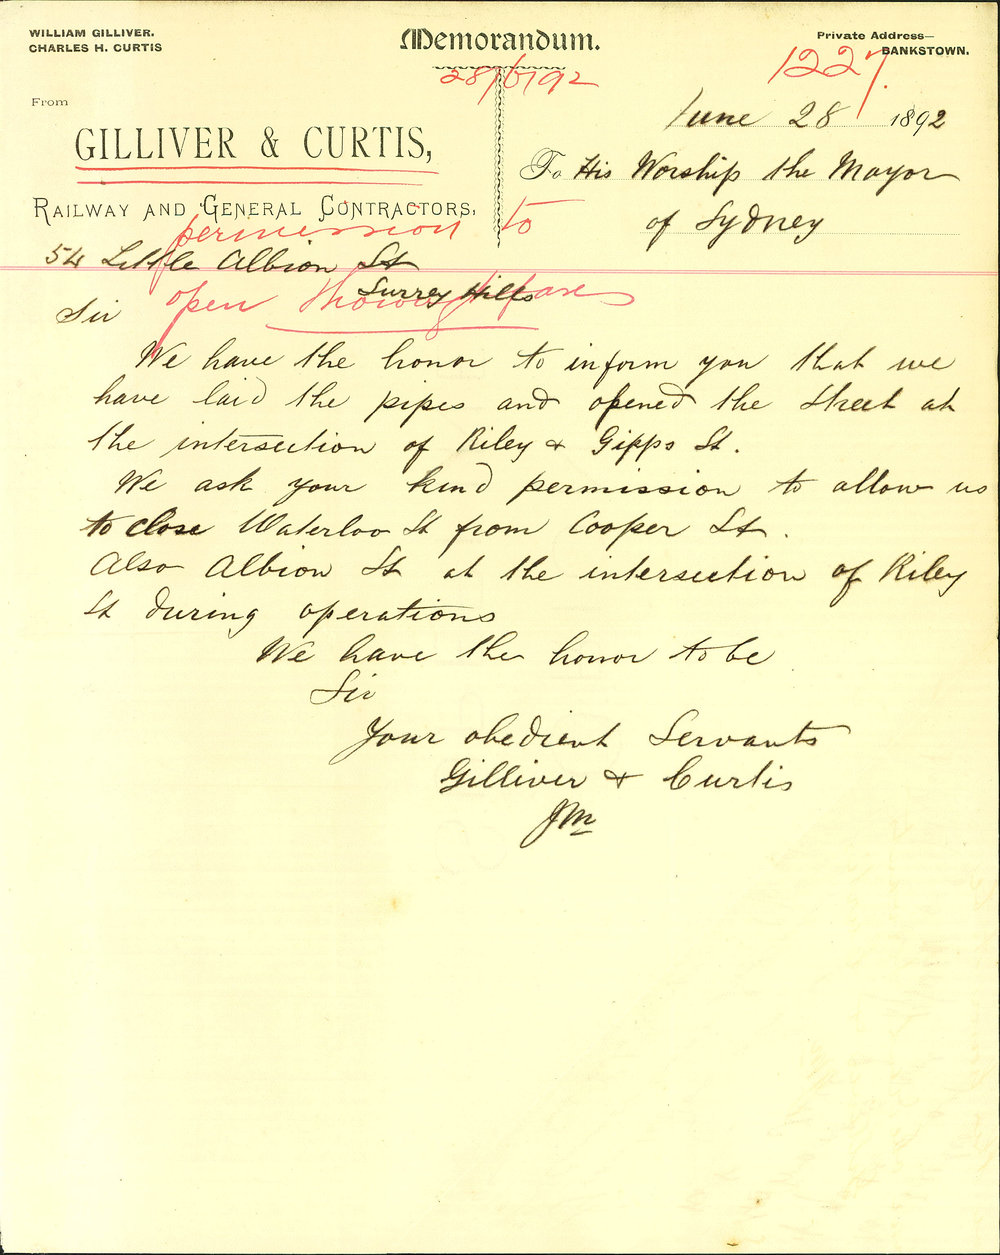 WILLIAM GILLIVER.
CHARLES H. CURTIS
Memorandum.
Private Address—
BANKSTOWN.
28/6/92
1227.
From
GILLIVER & CURTIS,
RAILWAY AND GENERAL CONTRACTORS,
June 28 1892
To His Worship the Mayor
of Sydney
permission to
open thoroughfares
54 Little Albion St
Surrey Hills
Sir
We have the honor to inform you that we
have laid the pipes and opened the street at
the intersection of Riley & Gipps St.
We ask your kind permission to allow us
to close Waterloo St from Cooper St.
Also Albion St at the intersection of Riley
St during operations
We have the honor to be
Sir
Your obedient Servants
Gilliver & Curtis
JM